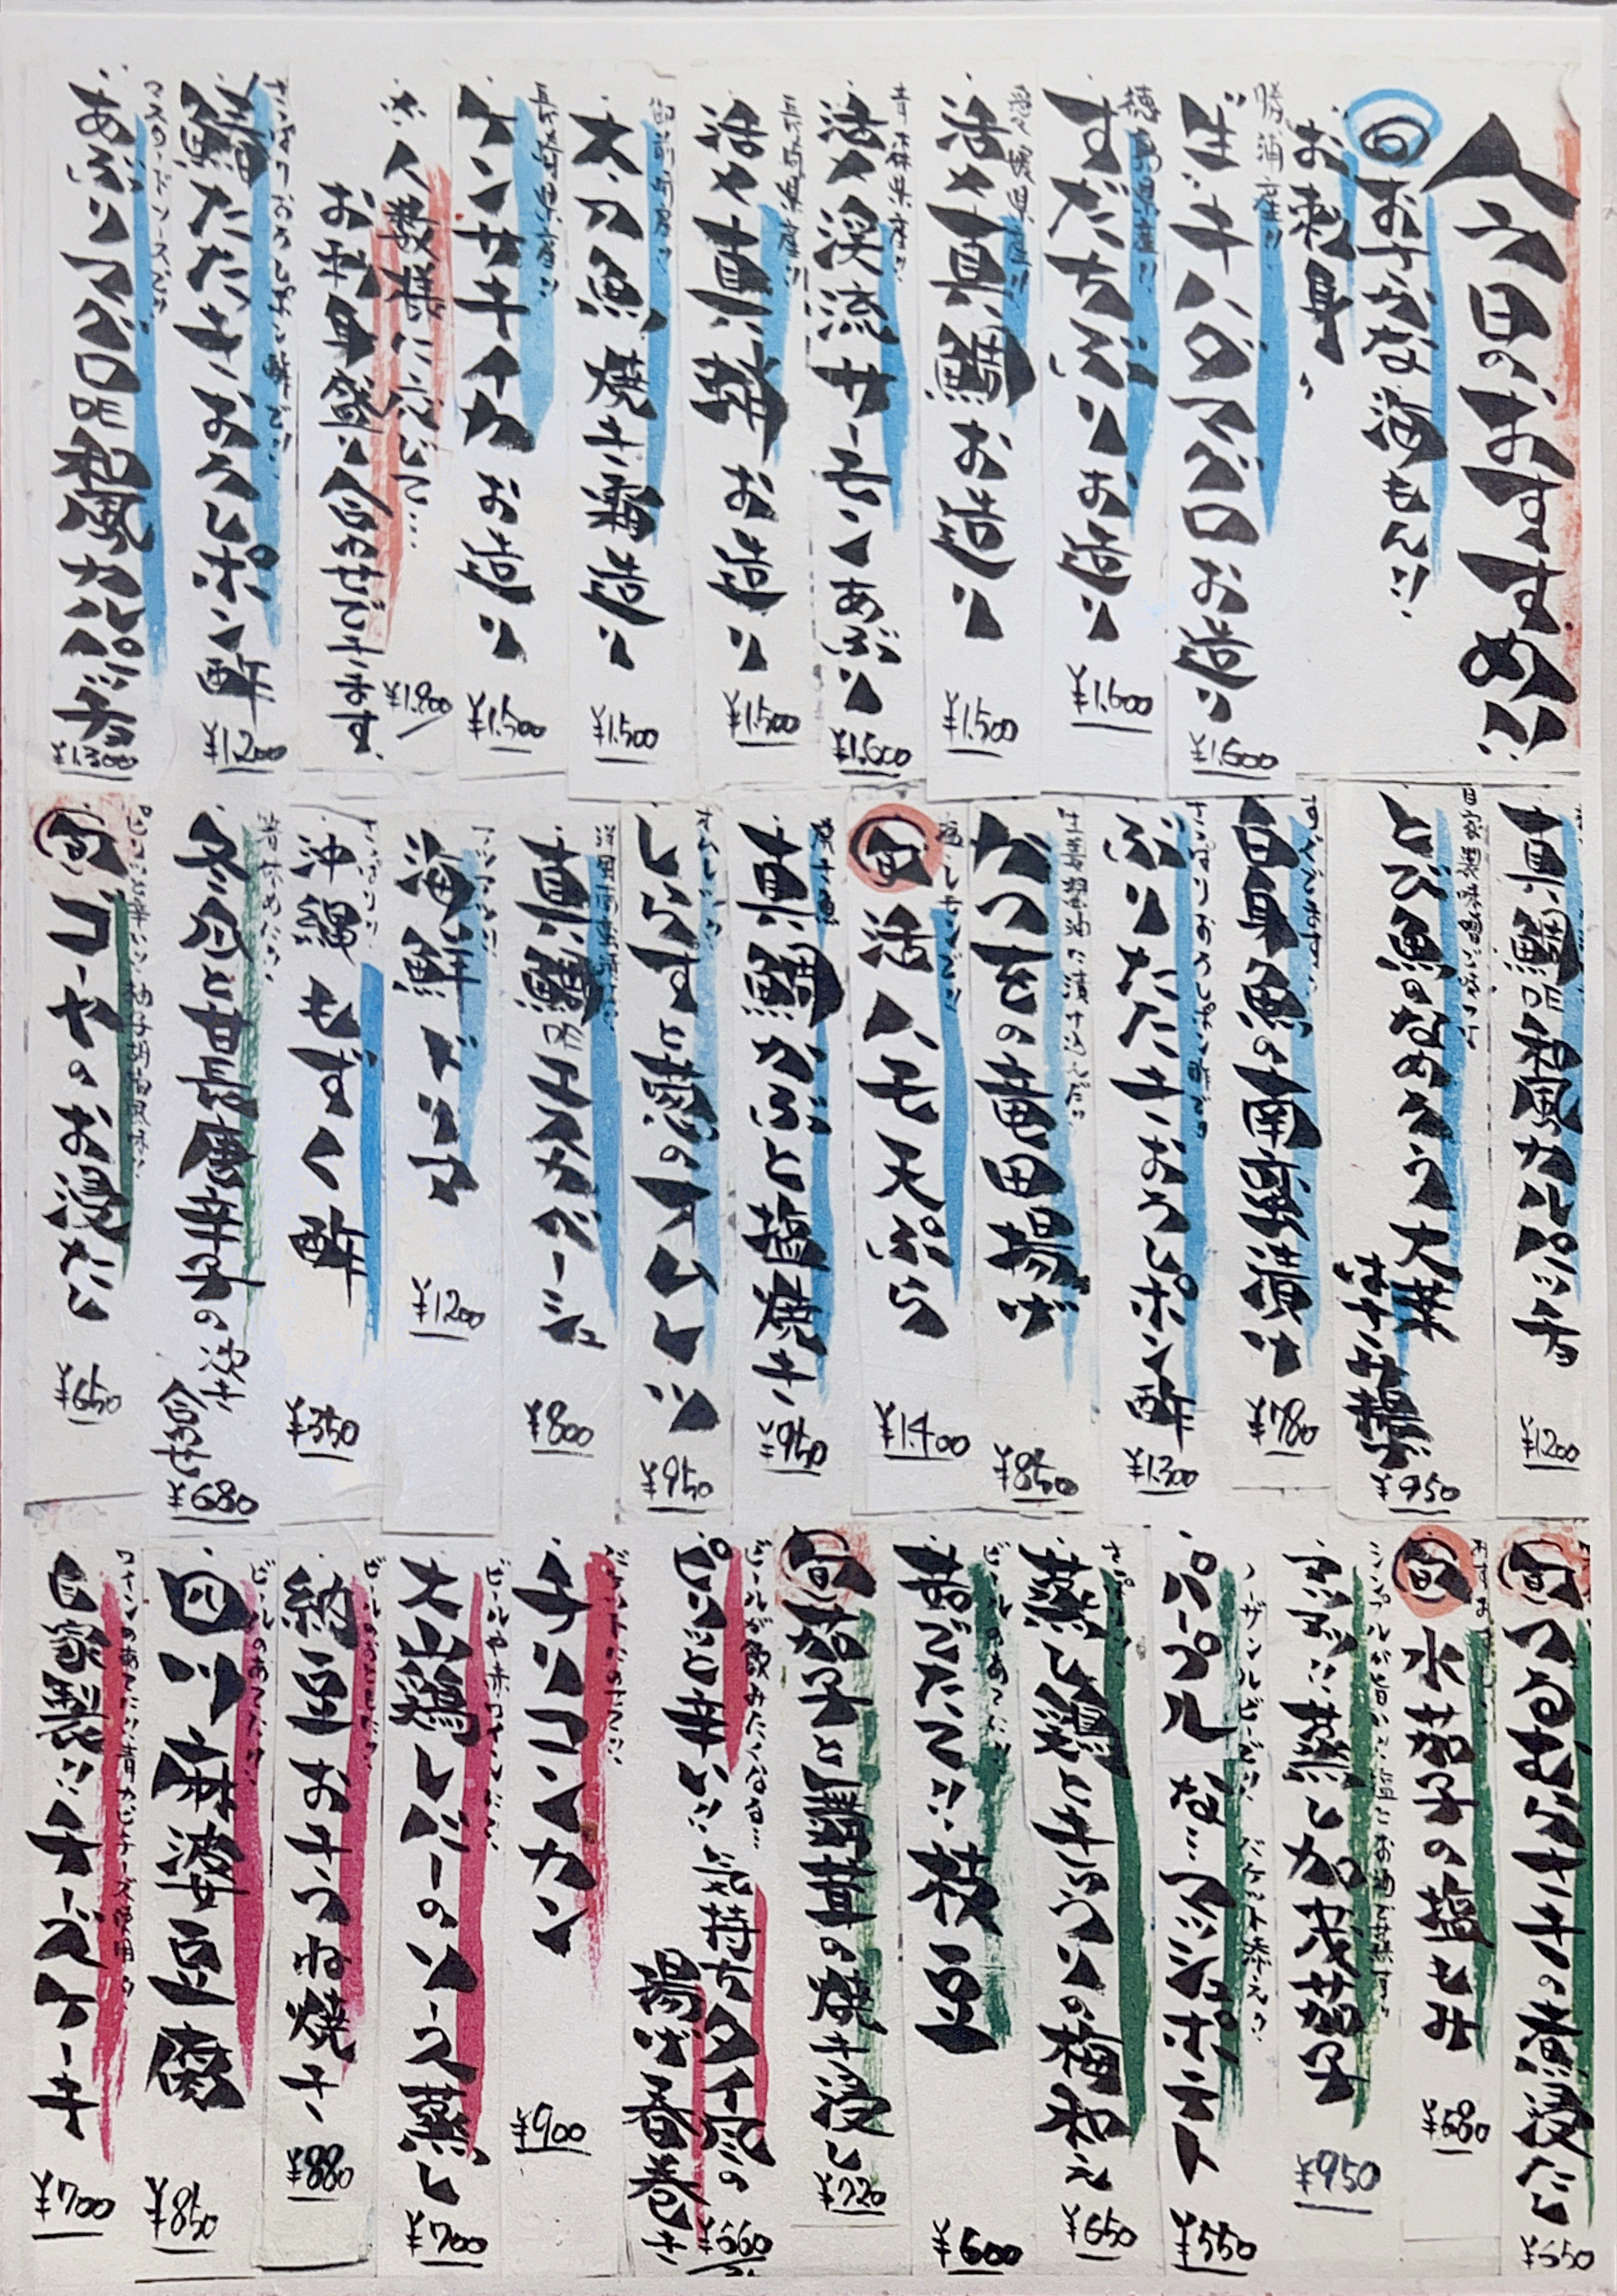 今日のおすすめ!!
旬 お子がな海もん!!
お刺身
勝浦産!!
生キハダマグロお造り
¥1.600
徳島県産!!
すだちぶりお造り
¥1.600
愛媛県産!!
活〆真鯛お造り
¥1.500
青森県産!!
活〆渓流サーモンあぶり
¥1.600
長崎県産!!
活〆真鯵お造り
¥1.500
太刀魚焼き霜造り
¥1.500
長崎県産!!
ケンサキイカお造り
¥1.500
※人数様に応じて…
お刺身盛り合わせできます
¥1.800
さっぱりおろしポン酢で!!
鯵たたきおろしポン酢
¥1200
マスタードソースで!!
あぶりマグロDE和風カルパッチョ
¥1.300
真鯛DE和風カルパッチョ
¥1200
とび魚のなめろう大葉はさみ揚げ
¥950
白身魚の南蛮漬け
¥780
さっぱりおろしポン酢で!!
ぶりたたきおろしポン酢
¥1.300
生姜醤油に漬け込んだ!!
かつをの竜田揚げ
¥850
塩・レモンで!!
旬 活ハモ天ぷら
¥1.400
真鯛かぶと塩焼き
¥950
しらすと葱のオムレツ
¥950
真鯛DEエスカベーシュ
¥800
アツアツ!!
海鮮ドリア
¥1200
さっぱり!!
沖縄もずく酢
¥350
冬瓜と甘長唐辛子の炊き合わせ
¥680
ピリッと辛い!!柚子胡椒風味!!
旬 ゴーヤのお浸たし
¥650
旬 つるむらさきの煮浸たし
¥550
旬 水茄子の塩もみ
¥680
アツアツ!!蒸し加茂茄子
¥950
パープルな…マッシュポテト
¥550
さっぱり!!
蒸し鶏ときゅうりの梅和え
¥650
ビールのあてに!!
茹でたて!!枝豆
¥600
旬 茄子と万願寺の焼き浸し
¥720
ビールが飲みたくなる…
ピリッと辛い!!気持ちタイ風の揚げ春巻き
¥660
チリコンカン
¥900
ビールや赤ワインに!!
大山鶏レバーのソース蒸し
¥700
ビールのおともに!!
納豆おきつね焼き
¥880
ビールのあてに!!
四川麻婆豆腐
¥850
ワインのあてに!!青カビチーズ使用!!
自家製!!チーズケーキ
¥700